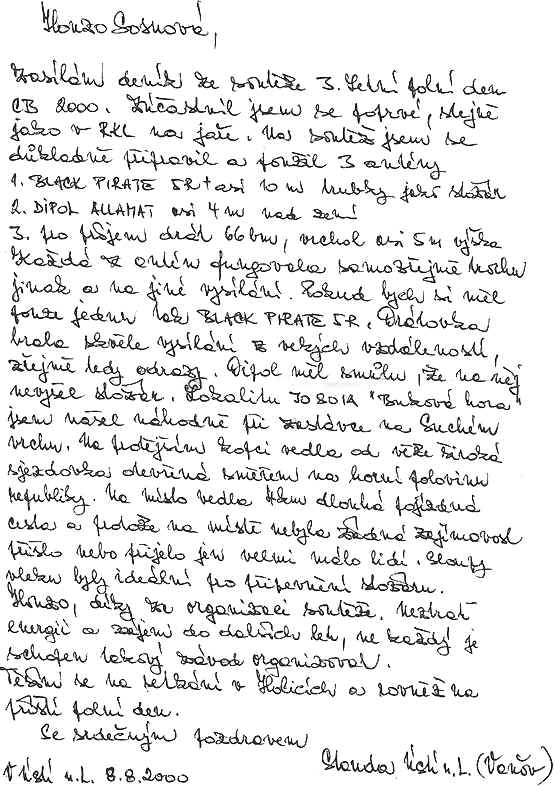 Honzo Sosnová,
Zasílám deník ze soutěže 3. Letní polní den
CB 2000. Zúčastnil jsem se poprvé, stejně
jako v RKL na jaře. Na soutěž jsem se
důkladně připravil a použil 3 antény
1. BLACK PIRATE 5R + asi 10 m trubky jako stožár
2. DIPOL ALLAMAT asi 4 m nad zemí
3. pro příjem drát 66 bm, vrchol asi 5 m výška
Každá z antén fungovala samozřejmě trochu
jinak a na jiné vysílání. Pokud bych si měl
pouze jednu tak BLACK PIRATE 5R. Drátovka
brala skvěle vysílání z velkých vzdáleností,
zřejmě tedy odrazy. Dipol měl smůlu, že na něj
nevyšel stožár. Lokalitu JO80IA "Buková hora"
jsem našel náhodně při zastávce na Suchém
vrchu. Na protějším kopci vedla od věže široká
sjezdovka otevřená směrem na horní polovinu
republiky. Na místo vedla 4km dlouhá pojízdná
cesta a protože na místě nebyla žádná zajímavost
přišlo nebo přijelo jen velmi málo lidí. Sloupy
vleku byly ideální pro připevnění stožáru.
Honzo, díky za organizaci soutěže. Neztrať
energii a zájem do dalších let, ne každý je
schopen takový závod organizovat.
Těším se na setkání v Holicích a rovněž na
příští polní den.
Se srdečným pozdravem
Standa Ústí n.L. (Vaňov)
V Ústí n.L. 8.8.2000